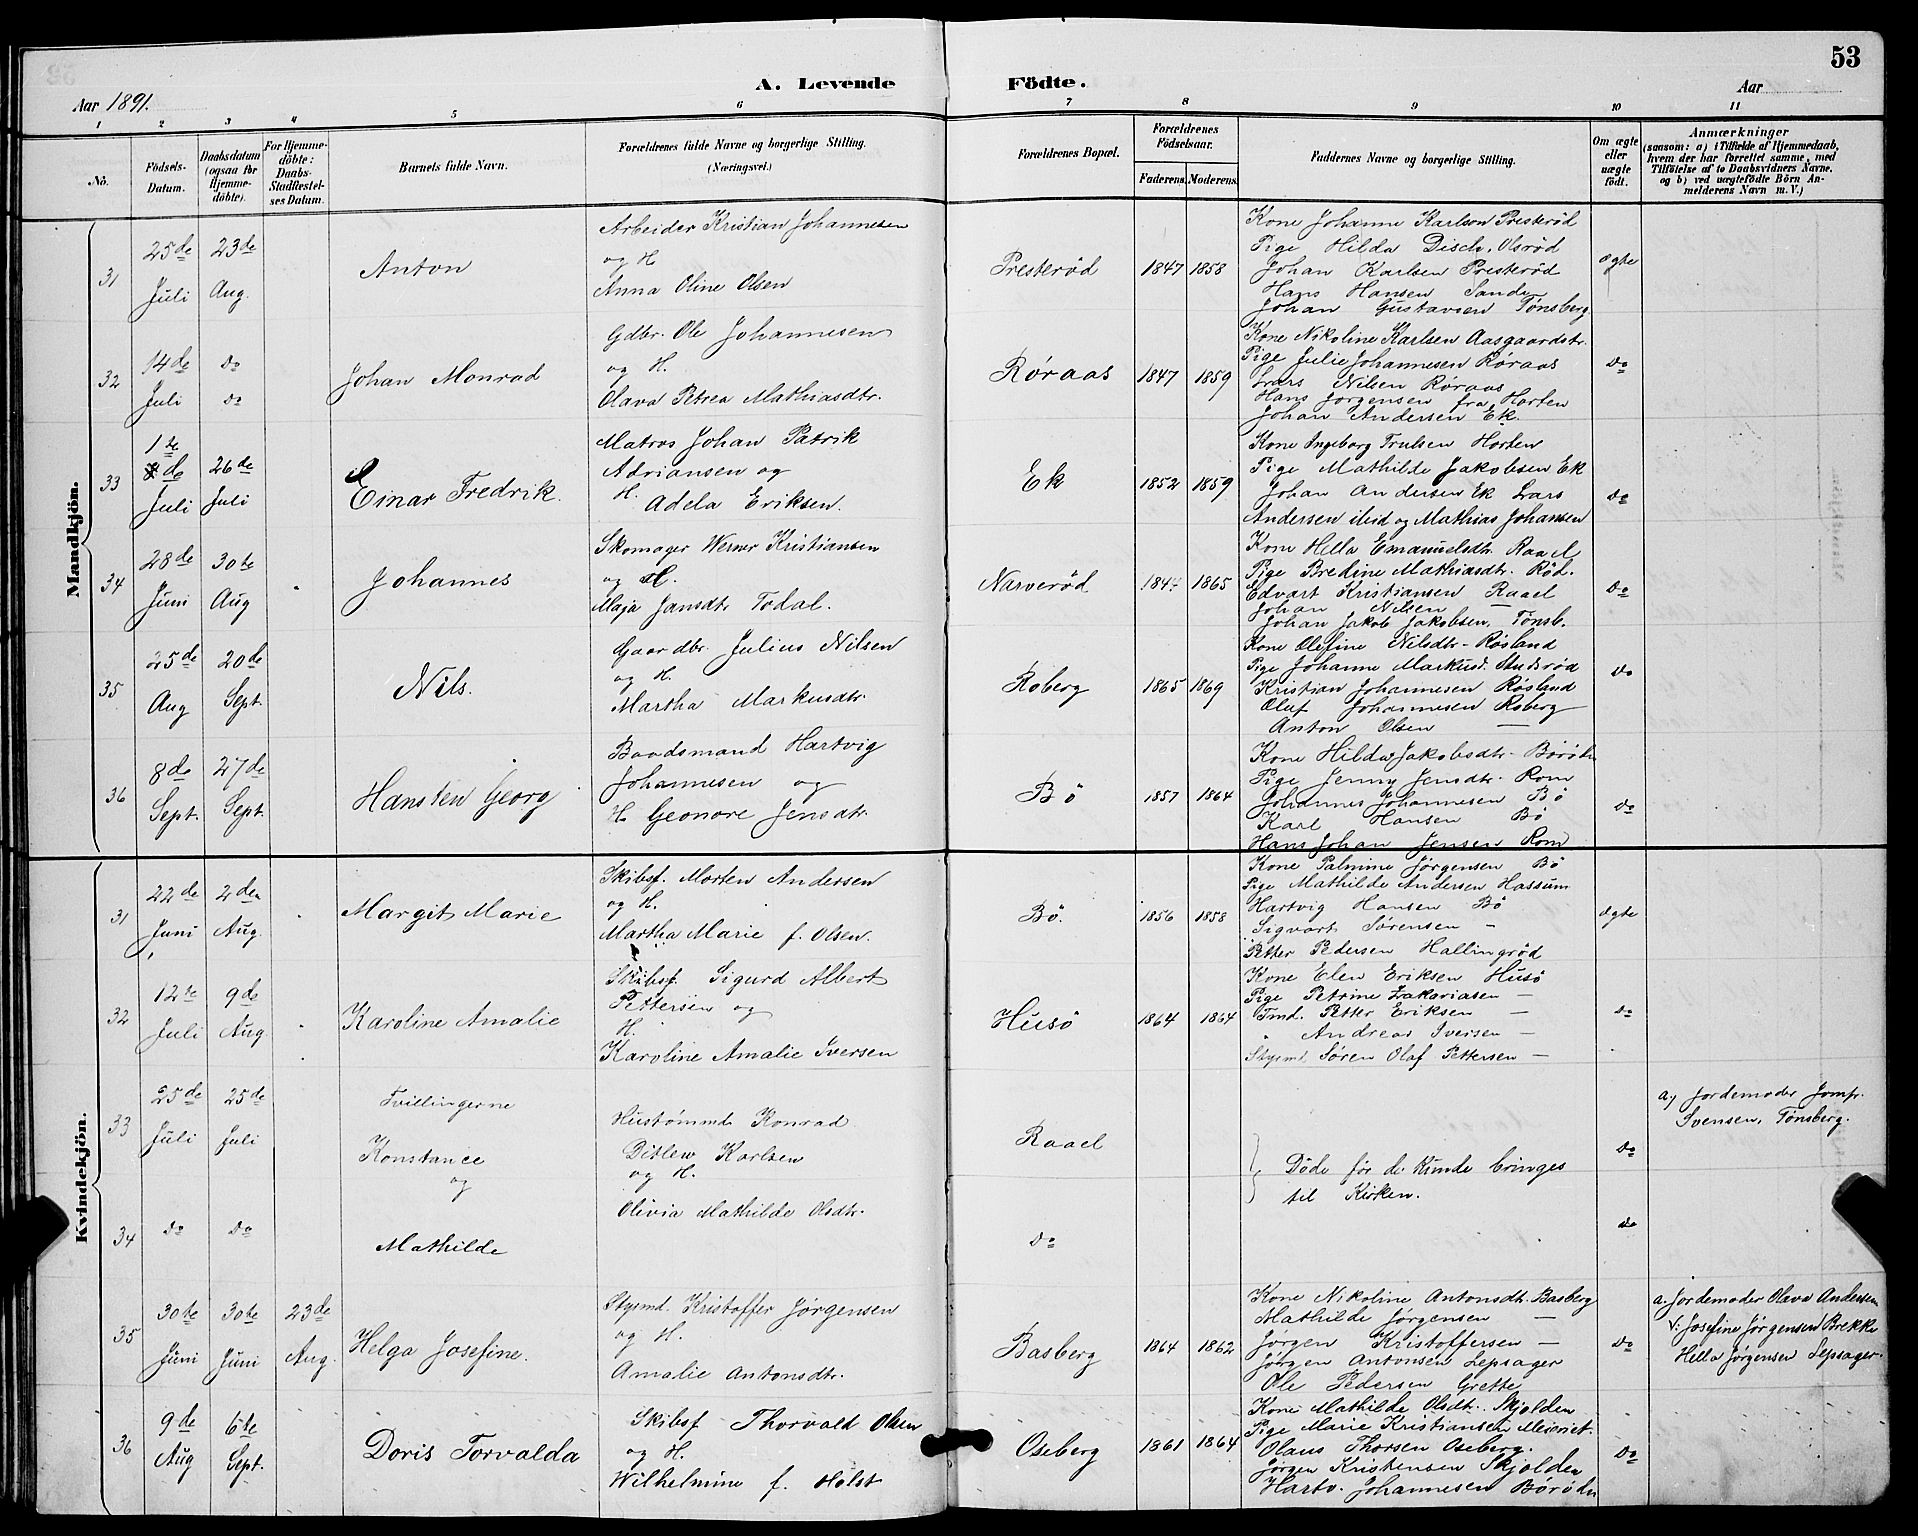 53
Aar 1891.
A. Levende Födte.
Aar
1 2 3 4 5 6 7 8 9 10 11
No.
Födsels-Datum.
Daabsdatum (ogsaa for Hjemme-döbte).
For Hjemme-döbte: Daabs-Stadfæstel-ses Datum.
Barnets fulde Navn.
Forældrenes fulde Navne og borgerlige Stilling. (Næringsvei.)
Forældrenes Bopæl.
Forældrenes Födselsaar.
Faderens. Moderens.
Faddernes Navne og borgerlige Stilling.
Om ægte eller uægte födt.
Anmærkninger
(saasom: a) i Tilfælde af Hjemmedaab,
hvem der har forrettet samme, med
Tilföielse af to Daabsvidners Navne,
og b) ved uægtefödte Börn An-
melderens Navn m. V.)
Mandkjön.
31
25de Juli
23de Aug.
Anton
Arbeider Kristian Johannesen
og H
Anna Oline Olsen
Presterød
1847 1858
Kone Johanne Karlson Presterød
Pige Hilda Disch, Olsrød
Johan Karlsen Presterød
Hans Hansen Sande
Johan Gustavsen Tønsberg
ægte
32
14de Juli
do do
Johan Monrad
Gdbr. Ole Johannesen
og H.
Olava Petrea Mathiasdtr.
Røraas
1847 1859
Kone Nikoline Karlsen Aasgaardstr.
Pige Julie Johannesen Røraas
Lars Nilsen Røraas
Hans Jørgensen fra Horten
Johan Andersen Ek.
do
33
1te
de Juli
26de Juli
Einar Fredrik.
Matros Johan Patrik
Adriansen og
H. Adela Eriksen.
Ek
1852 1859
Kone Ingeborg Trulsen Horten
Pige Mathilde Jakobsen Ek
Johan Andersen Ek Lars
Andersen ibid og Mathias Johansen
do
34
28de Juni
30te Aug
Johannes
Skomager Werner Kristiansen
og H.
Maja Jansdtr Todal.
Narverød
1865
Kone Hella Emanuelsdtr. Raael
Pige Bredine Mathiasdtr. Rød.
Edvart Kristiansen Raael
Johan Nilsen —
Johan Jakob Jakobsen, Tønsb.
do
35
25de Aug
20de Sept.
Nils.
Gaardbr. Julius Nilsen
og H.
Martha Markusdtr.
Roberg
1865 1869
Kone Olefine Nilsdtr. Røsland
Pige Johanne Markusd.
Kristian Johannesen Røsland
Oluf Johannesen Roberg
Anton Olsen —
do
36
8de Sept.
27de Sept.
Hansten Georg
Baadsmand Hartvig
Johannesen og
H. Geonore Jensdtr.
Bö
1857 1864
Kone Hilda Jakobsdtr.
Pige Jenny Jensdtr. Rom
Johannes Johannesen Bö
Karl Hansen Bö
Hans Johan Jensen Rom
do
Kvindekjön.
31
22de Juni
2den Aug.
Margit Marie
Skibsf. Morten Andersen
og H.
Martha Marie f. Olsen.
Bö.
1856 1858
Kone Palmine Jørgensen Bö
Pige Mathilde Andersen Hassum
Hartvig Hansen Bö
Sigvart Sørensen —
Petter Pedersen Hallingrød
ægte
32
12te Juli
9de Aug.
Karoline Amalie
Skibsf. Sigurd Albert
Pettersen og
H.
Karoline Amalie Iversen
Husö
1864 1864
Kone Elen Eriksen Husö
Pige Petrine Zakariasen —
Tmd. Petter Eriksen —
Andreas Iversen —
Stysmd. Søren Olaf Pettersen —
do
33
25de Juli
25de Juli
Tvillingerne
Konstance
og
Hustømmd. Konrad
Ditlew Karlsen
og H.
Olivia Mathilde Olsdtr.
Raael
Døde før de kunde bringes
til Kirken.
do
a) Jordemoder Jomfr.
Svensen, Tønsberg.
34
do do
Mathilde
do
do
35
30te Juni
30te Juni
23de Aug.
Helga Josefine.
Stysmd. Kristoffer Jørgensen
og H.
Amalie Antonsdtr.
Basberg
1864 1862
Kone Nikoline Antonsdtr. Basberg
Mathilde Jørgensen —
Jørgen Kristoffersen —
Jørgen Antonsen Lepsager
Ole Pedersen Grette
do
a. Jordemoder Olava Andersen
V: Josefine Jørgensen Brekke
Hella Jørgensen Lepsager.
36
9de Aug
6te Sept.
Doris Torvalda
Skibsf Thorvald Olsen
og H.
Wilhelmine f. Holst
Oseberg
1861 1864
Kone Mathilde Olsdtr. Skjolden
Pige Marie Kristiansen Meieriet.
Olaus Thorsen Oseberg.
Jørgen Kristensen Skjolden
Hartv. Johannesen
do